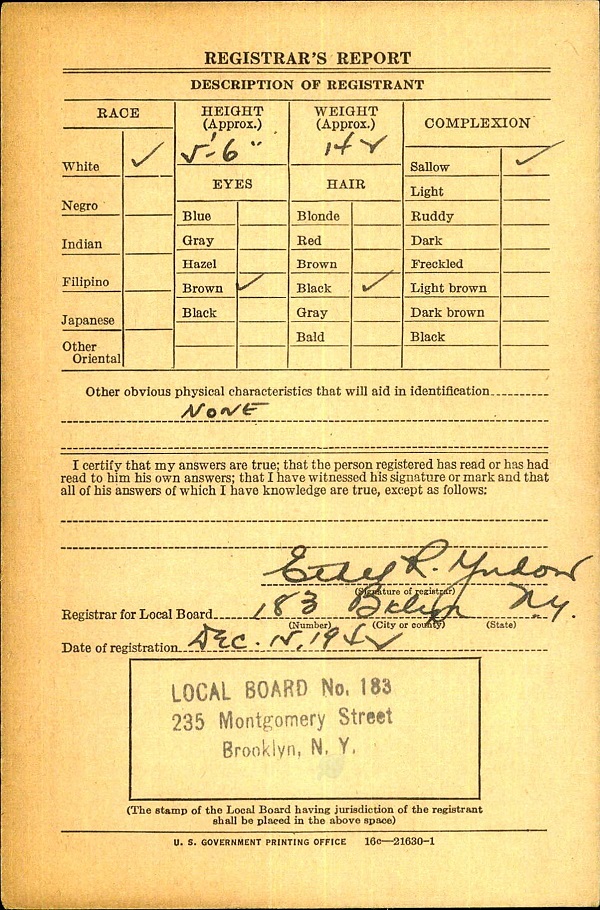 REGISTRAR'S REPORT
DESCRIPTION OF REGISTRANT
RACE
HEIGHT
(Approx.)
WEIGHT
(Approx.)
COMPLEXION
5'-6"
142
White ✓
Negro
Indian
Filipino
Japanese
Other
Oriental
EYES
Blue
Gray
Hazel
Brown ✓
Black
HAIR
Blonde
Red
Brown
Black ✓
Gray
Bald
Sallow ✓
Light
Ruddy
Dark
Freckled
Light brown
Dark brown
Black
Other obvious physical characteristics that will aid in identification
NONE
I certify that my answers are true; that the person registered has read or has had
read to him his own answers; that I have witnessed his signature or mark and that
all of his answers of which I have knowledge are true, except as follows:
R.
(Signature of registrar)
Registrar for Local Board 183 Bklyn N.Y.
(Number) (City or county) (State)
Date of registration DEC. 15, 1942
LOCAL BOARD No. 183
235 Montgomery Street
Brooklyn, N. Y.
(The stamp of the Local Board having jurisdiction of the registrant
shall be placed in the above space)
U. S. GOVERNMENT PRINTING OFFICE 16c—21630-1